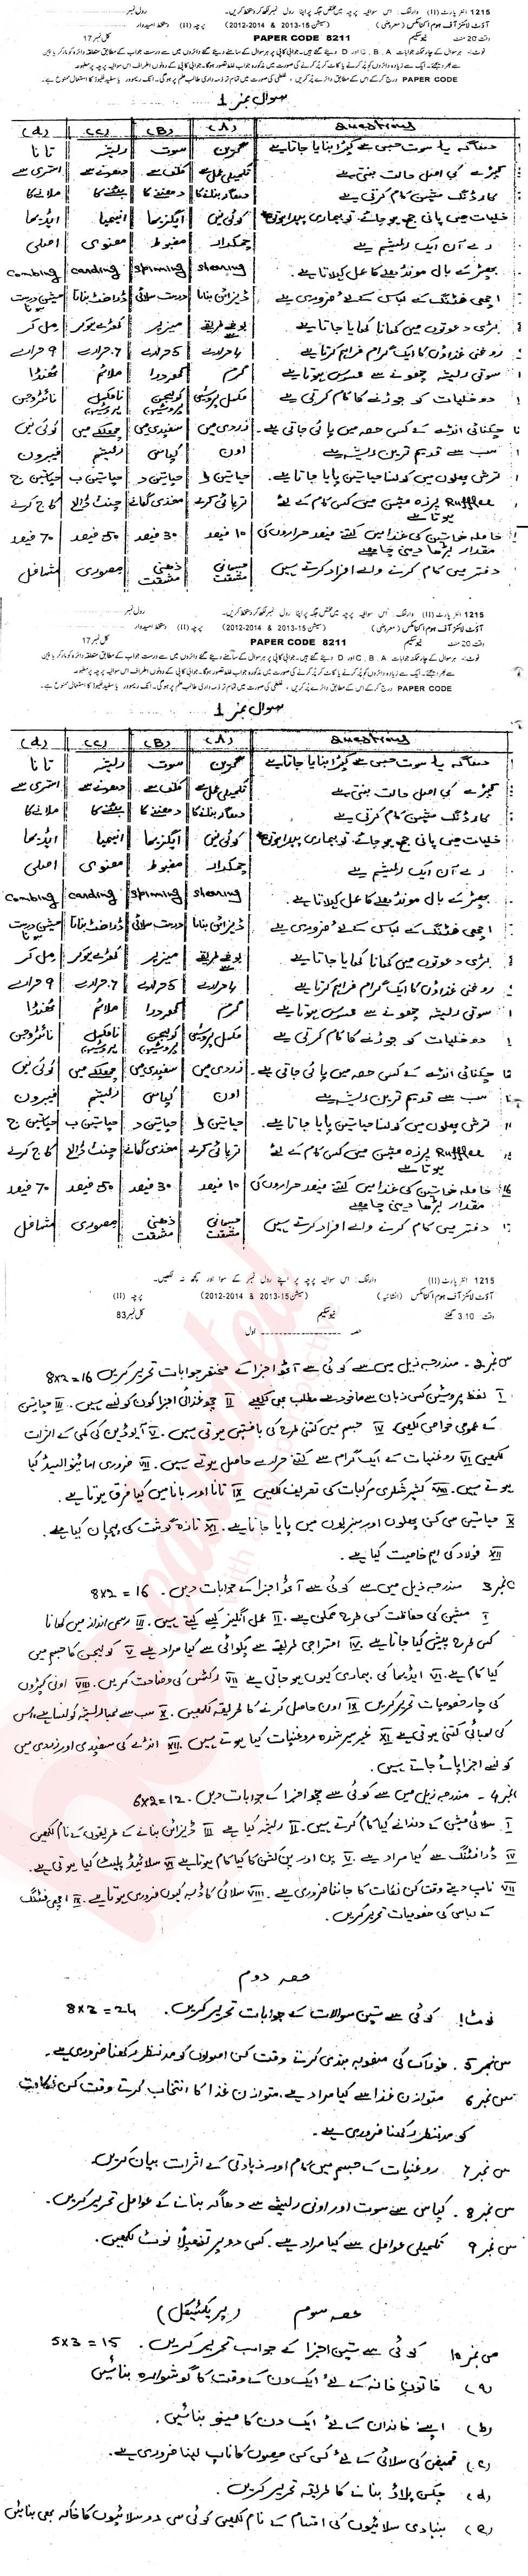 1215 انٹر پارٹ (II) وارننگ: اس سوالیہ پرچہ میں مختص جگہ پر اپنا رول نمبر لکھ کر دستخط کریں۔ رول نمبر
آؤٹ لائنز آف ہوم اکنامکس (معروضی) (سیشن 15-2013 & 2014-2012) پرچہ (II) دستخط امیدوار
وقت 20 منٹ PAPER CODE 8211 کل نمبر 17
سوال نمبر 1
Questions (A) (B) (C) (d)
دھاگہ یا سوت جس سے کپڑا بنایا جاتا ہے سوت ریشہ تانا
کپڑے کی اصل حالت بنتی ہے تکمیلی عمل سے کلف سے دھونے سے استری سے
کارڈنگ مشین کام کرتی ہے
خلیات میں پانی جمع ہو جائے تو بیماری پیدا ہوتی ہے کوئی نہیں ایگزیما انیمیا ایڈیما
رے آن ایک ریشم ہے چمکدار مضبوط مصنوعی اصلی
بھیڑ کے بال مونڈھنے کا عمل کہلاتا ہے۔ shearing spinning carding combing
اچھی فٹنگ کے لباس کے لئے ضروری ہے ڈیزائن بنانا درست سلائی ڈرافٹ بنانا مشین درست
بڑی دعوتوں میں کھانا کھایا جاتا ہے بوفے طریقہ میز پر کھڑے ہو کر مل کر
روغنی غذاؤں کا ایک گرام فراہم کرتا ہے 4 حرارے 5 حرارے 7 حرارے 9 حرارے
سوتی ریشہ چھونے سے محسوس ہوتا ہے گرم کھردرا ملائم ٹھنڈا
دو خلیات کو جوڑنے کا کام کرتی ہے مکمل پروٹین کولیجن پروٹین نامکمل پروٹین نائٹروجن
چکنائی انڈے کے کس حصہ میں پائی جاتی ہے۔ زردی میں سفیدی میں چھلکے میں کوئی نہیں
سب سے قدیم ترین ریشہ ہے اون کپاس ریشم فیرون
ترش پھلوں میں کونسا حیاتین پایا جاتا ہے۔ حیاتین د حیاتین ب حیاتین ج
Ruffler پرزہ مشین میں کس کام کے لئے ہوتا ہے ترپائی کرنے مغزی لگانے چنٹ ڈالنے کاج کرنے
حاملہ خواتین کی غذا میں کتنے فیصد حراروں کی مقدار بڑھا دینی چاہیے 10 فیصد 30 فیصد 50 فیصد 70 فیصد
دفتر میں کام کرنے والے افراد کرتے ہیں جسمانی مشقت ذہنی مشقت مصوری مشاغل
1215 انٹر پارٹ (II) وارننگ: اس سوالیہ پرچہ میں مختص جگہ پر اپنا رول نمبر لکھ کر دستخط کریں۔ رول نمبر
آؤٹ لائنز آف ہوم اکنامکس (معروضی) (سیشن 15-2013 & 2014-2012) پرچہ (II) دستخط امیدوار
وقت 20 منٹ نیو سکیم PAPER CODE 8211 کل نمبر 17
سوال نمبر 1
Questions (A) (B) (C) (d)
دھاگہ یا سوت جس سے کپڑا بنایا جاتا ہے سوت ریشہ تانا
کپڑے کی اصل حالت بنتی ہے تکمیلی عمل سے کلف سے دھونے سے استری سے
کارڈنگ مشین کام کرتی ہے
خلیات میں پانی جمع ہو جائے تو بیماری پیدا ہوتی ہے کوئی نہیں ایگزیما انیمیا ایڈیما
رے آن ایک ریشم ہے چمکدار مضبوط مصنوعی اصلی
بھیڑ کے بال مونڈھنے کا عمل کہلاتا ہے۔ shearing spinning carding combing
اچھی فٹنگ کے لباس کے لئے ضروری ہے ڈیزائن بنانا درست سلائی ڈرافٹ بنانا مشین درست
بڑی دعوتوں میں کھانا کھایا جاتا ہے بوفے طریقہ میز پر کھڑے ہو کر مل کر
روغنی غذاؤں کا ایک گرام فراہم کرتا ہے 4 حرارے 5 حرارے 7 حرارے 9 حرارے
سوتی ریشہ چھونے سے محسوس ہوتا ہے گرم کھردرا ملائم ٹھنڈا
دو خلیات کو جوڑنے کا کام کرتی ہے مکمل پروٹین کولیجن پروٹین نامکمل پروٹین نائٹروجن
چکنائی انڈے کے کس حصہ میں پائی جاتی ہے۔ زردی میں سفیدی میں چھلکے میں کوئی نہیں
سب سے قدیم ترین ریشہ ہے اون کپاس ریشم فیرون
ترش پھلوں میں کونسا حیاتین پایا جاتا ہے۔ حیاتین د حیاتین ب حیاتین ج
Ruffler پرزہ مشین میں کس کام کے لئے ہوتا ہے ترپائی کرنے مغزی لگانے چنٹ ڈالنے کاج کرنے
حاملہ خواتین کی غذا میں کتنے فیصد حراروں کی مقدار بڑھا دینی چاہیے 10 فیصد 30 فیصد 50 فیصد 70 فیصد
دفتر میں کام کرنے والے افراد کرتے ہیں جسمانی مشقت ذہنی مشقت مصوری مشاغل
1215 انٹر پارٹ (II) وارننگ: اس سوالیہ پرچہ پر اپنے رول نمبر کے سوا اور کچھ نہ لکھیں۔
آؤٹ لائنز آف ہوم اکنامکس (انشائیہ) (سیشن 15-2013 & 2014-2012) پرچہ (II)
وقت: 3.10 گھنٹے نیو سکیم کل نمبر 83
حصہ اول
س نمبر 2۔ مندرجہ ذیل میں سے کوئی سے آٹھ اجزا کے مختصر جوابات تحریر کریں 8x2=16
I لفظ پروٹین کس زبان سے ماخوذ ہے مطلب بھی لکھیے II چھ غذائی اجزا کون کونسے ہیں۔ III حیاتین
کے عمومی خواص لکھیں۔ IV جسم میں کتنی طرح کی بافتیں ہوتی ہیں۔ V آیوڈین کی کمی کے اثرات
لکھیں VI روغنیات کے ایک گرام سے کتنے حرارے حاصل ہوتے ہیں۔ VII ضروری امائنو ایسڈ کیا
ہوتے ہیں۔ VIII کثیر شکری مرکبات کی تعریف لکھیں IX تانا اور بانا میں کیا فرق ہوتا ہے۔
X حیاتین سی کن پھلوں اور سبزیوں میں پایا جاتا ہے۔ XI تازہ گوشت کی پہچان کیا ہے۔
XII فولاد کی اہم خاصیت کیا ہے۔
نمبر 3 مندرجہ ذیل میں سے کوئی سے آٹھ اجزا کے جوابات دیں۔ 8x2=16
I مشین کی حفاظت کس طرح ممکن ہے۔ II عمل انگیز کسے کہتے ہیں۔ III رسمی انداز میں کھانا
کس طرح پیش کیا جاتا ہے IV امتزاجی طریقہ سے پکوائی سے کیا مراد ہے V کولیجن کا جسم میں
کیا کام ہے۔ VI ایڈیما کی بیماری کیوں ہو جاتی ہے VII رکٹس کی وضاحت کریں۔ VIII اونی کپڑوں
کی چار خصوصیات تحریر کریں IX اون حاصل کرنے کا طریقہ لکھیں۔ X سب سے لمبا ریشہ کونسا ہے، اس
کی لمبائی کتنی ہوتی ہے XI غیر سیر شدہ روغنیات کیا ہوتے ہیں۔ XII انڈے کی سفیدی اور زردی میں
کونسے اجزا پائے جاتے ہیں۔
نمبر 4۔ مندرجہ ذیل میں سے کوئی سے چھ اجزا کے جوابات دیں۔ 6x2=12
I سلائی مشین کے دندانے کیا کام کرتے ہیں۔ II ریشہ کیا ہے III ڈیزائن بنانے کے طریقوں کے نام لکھیں
IV ڈرافٹنگ سے کیا مراد ہے۔ V پن اور پن کشن کا کیا کام ہوتا ہے VI سلائیڈ پلیٹ کیا ہوتی ہے۔
VII ناپ لیتے وقت کن نکات کا جاننا ضروری ہے۔ VIII سلائی کا ڈبہ کیوں ضروری ہوتا ہے۔ IX اچھی فٹنگ
کے لباس کی خصوصیات تحریر کریں۔
حصہ دوم
نوٹ! کوئی سے تین سوالات کے جوابات تحریر کریں۔ 8x3=24
س نمبر 5۔ خوراک کی منصوبہ بندی کرتے وقت کن اصولوں کو مدنظر رکھنا ضروری ہے۔
س نمبر 6 متوازن غذا سے کیا مراد ہے۔ متوازن غذا کا انتخاب کرتے وقت کن نکات
کو مدنظر رکھنا ضروری ہے۔
س نمبر 7 روغنیات کے جسم میں کام اور زیادتی کے اثرات بیان کریں۔
س نمبر 8۔ کپاس سے سوت اور اونی ریشے سے دھاگہ بنانے کے عوامل تحریر کریں۔
س نمبر 9 تکمیلی عوامل سے کیا مراد ہے۔ کسی دو پر تفصیلاً نوٹ لکھیں۔
حصہ سوم (پریکٹیکل)
س نمبر 10 کوئی سے تین اجزا کے جواب تحریر کریں۔ 5x3=15
(a) خاتون خانہ کے لئے ایک دن کے وقت کا گوشوارہ بنائیں
(b) اپنے خاندان کے لئے ایک دن کا مینو بنائیں۔
(c) قمیض کی سلائی کے لئے کن کن حصوں کا ناپ لینا ضروری ہے۔
(d) چکن پلاؤ بنانے کا طریقہ تحریر کریں۔
(e) بنیادی سلائیوں کی اقسام کے نام لکھیں کوئی سی دو سلائیوں کا خاکہ بھی بنائیں